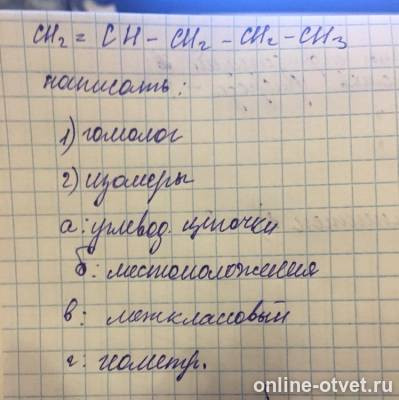 CH2 = CH - CH2 - CH2 - CH3
написать:
1) гомолог
2) изомеры
а: углевод. цепочки
б: местоположения
в: межкласовый
г: геометр.
online-otvet.ru